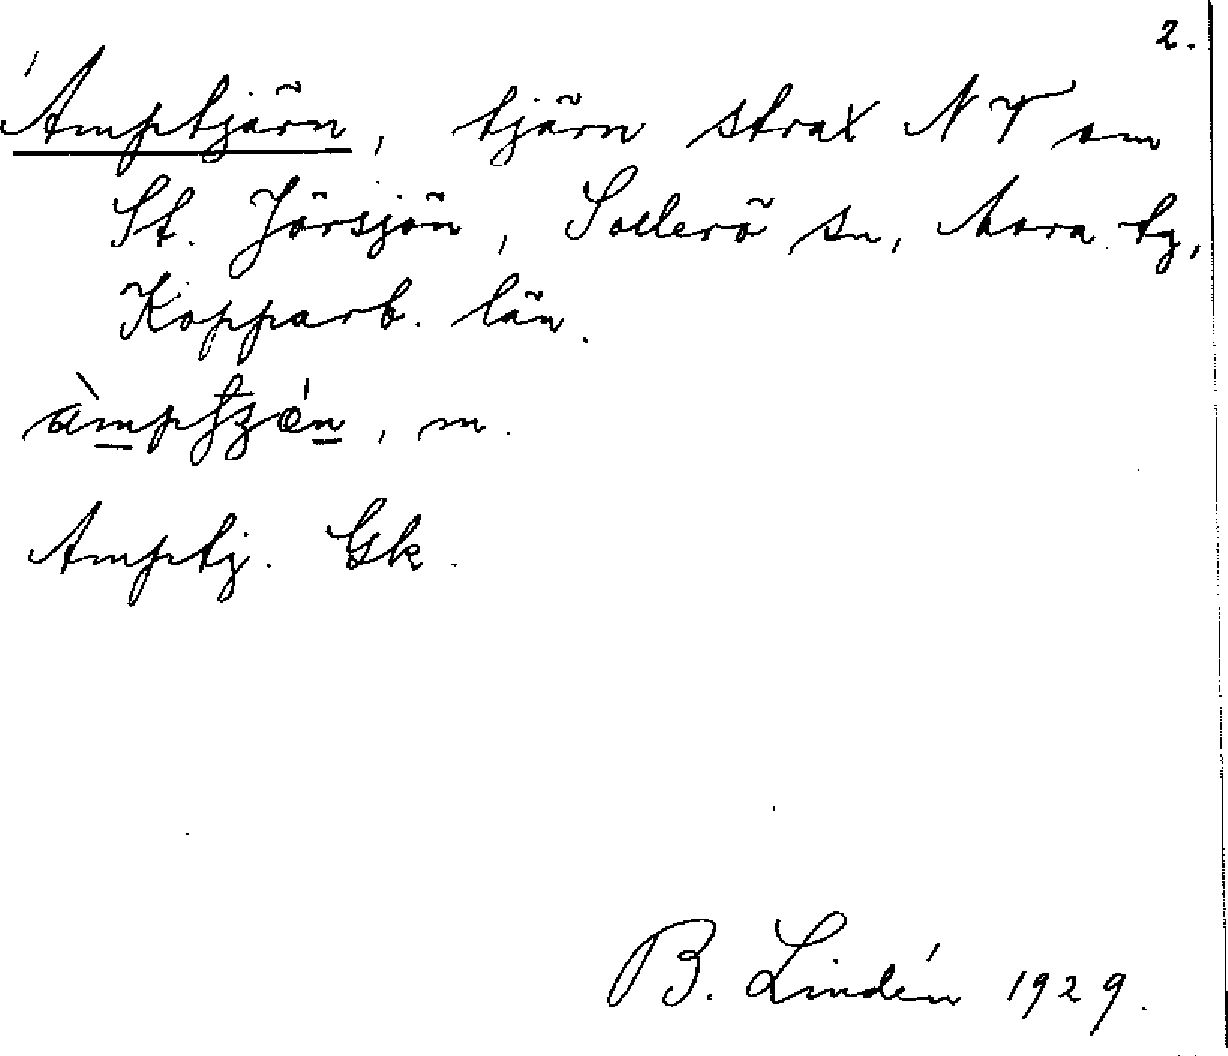 2.
Amptjärn, tjärn strax NV om
St. Jörsjön, Sollerö sn, Mora tg,
Kopparb. län.
m.
Amptj. Gk.
B. Lindén 1929.